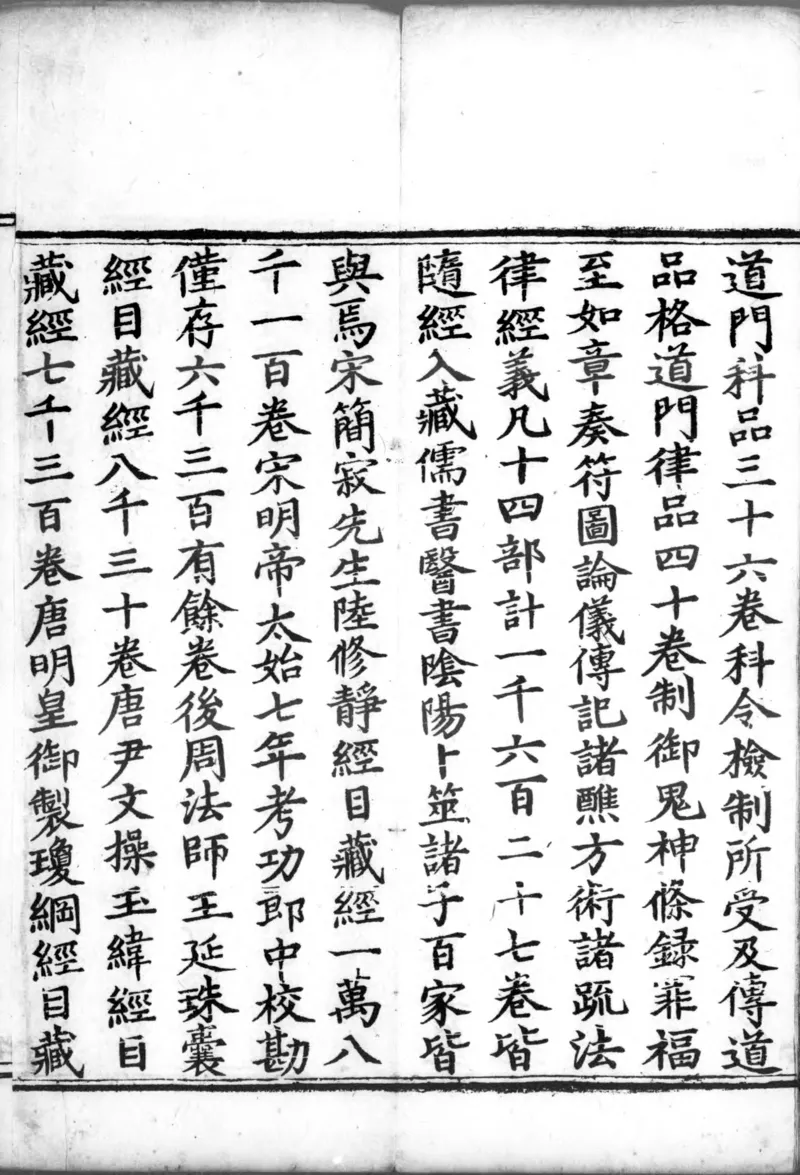 道門科品三十六卷科令檢制所受及傳道
品格道門律品四十卷制御鬼神條録罪福
至如章奏符圖論儀傳記諸醮方術諸疏法
律經義凡十四部計一千六百二十七卷皆
隨經入藏儒書醫書陰陽卜筮諸子百家皆
與焉宋簡寂先生陸修靜經目藏經一萬八
千一百卷宋明帝太始七年考功郎中校勘
僅存六千三百有餘卷後周法師王延珠囊
經目藏經八千三十卷唐尹文操玉緯經目
藏經七千三百卷唐明皇御製瓊綱經目藏